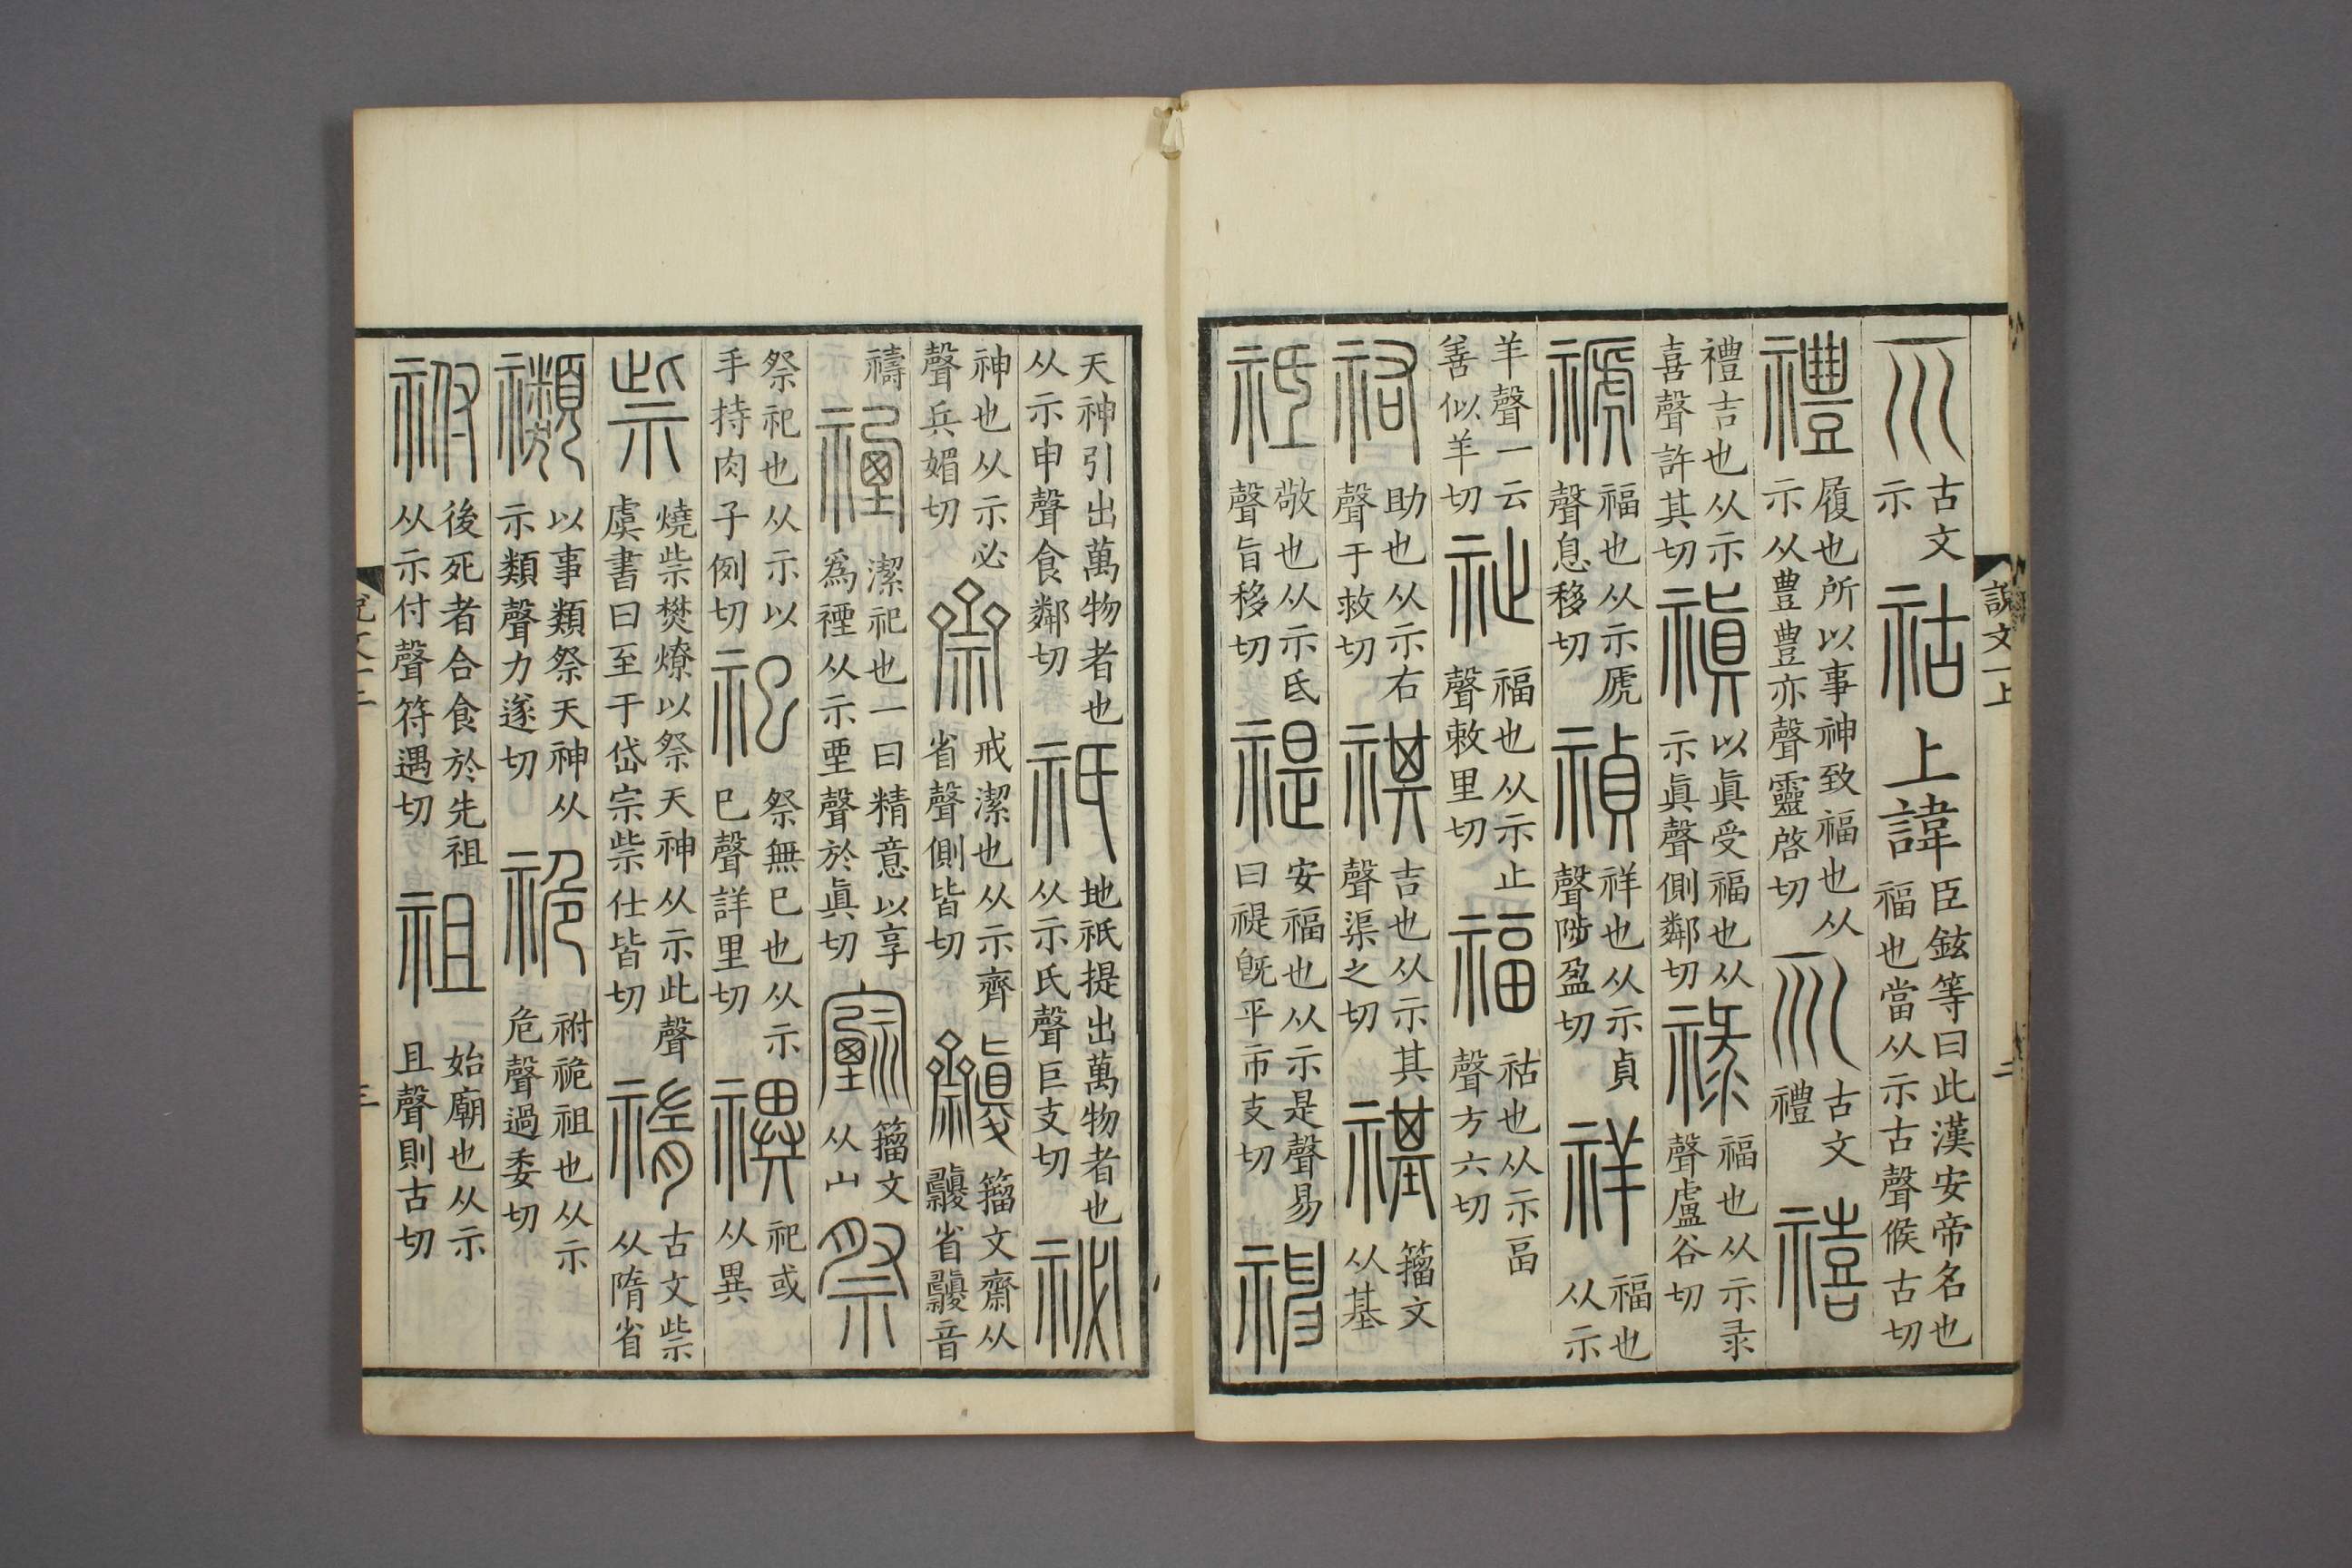 說文一上 二
古文示 祜 上諱 臣鉉等曰此漢安帝名也福也當从示古聲候古切
禮 履也所以事神致福也从示从豊豊亦聲靈啓切 古文禮 禧
禮吉也从示喜聲許其切 禛 以眞受福也从示眞聲側鄰切 祿 福也从示录聲盧谷切
禠 福也从示虒聲息移切 禎 祥也从示貞聲陟盈切 祥 福也从示
羊聲一云善似羊切 祉 福也从示止聲敕里切 福 祜也从示畐聲方六切
祐 助也从示右聲于救切 祺 吉也从示其聲渠之切 禥 籒文从基
祗 敬也从示氐聲旨移切 禔 安福也从示是聲易曰禔旣平市支切 神
天神引出萬物者也从示申聲食鄰切 祇 地祇提出萬物者也从示氏聲巨支切 祕
神也从示必聲兵媚切 齋 戒潔也从示齊省聲側皆切 籒文齋从省音
禱 禋 潔祀也一曰精意以享爲禋从示垔聲於眞切 籒文从宀 祭
祭祀也从示以手持肉子例切 祀 祭無巳也从示巳聲詳里切 禩 祀或从異
祡 燒祡樊燎以祭天神从示此聲虞書曰至于岱宗祡仕皆切 古文祡从隋省
禷 以事類祭天神从示類聲力遂切 祪 祔祪祖也从示危聲過委切
祔 後死者合食於先祖从示付聲符遇切 祖 始廟也从示且聲則古切
三